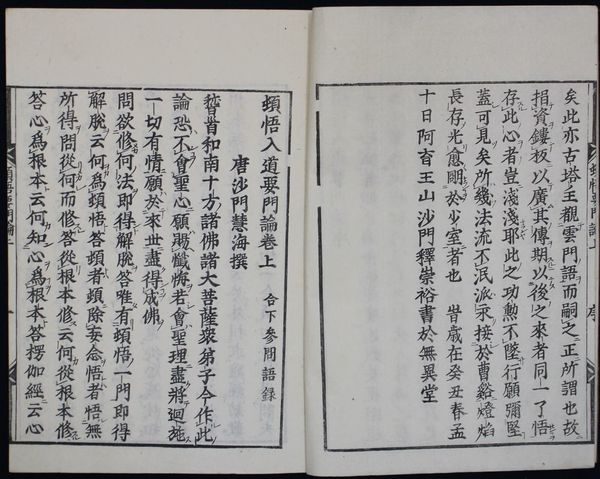 矣此亦古塔主觀雲門語而嗣之正所謂也故
捐資鏤板以廣其傳期以後之來者同一了悟
存此心者豈淺淺耶此之功勲不墜行願彌堅
蓋可見矣所幾法流不泯派永接於曹谿燈焰
長存光愈朙於少室者也　旹歳在癸丑春孟
十日阿育王山沙門釋崇裕書於無異堂
頓悟要門論上　序
頓悟入道要門論卷上　合下參問語録
唐沙門慧海撰
稽首和南十方諸佛諸大菩薩衆弟子今作此
論恐不會聖心願賜懺悔若會聖理盡將迴施
一切有情願於來世盡得成佛
問欲修何法即得解脫答唯有頓悟一門即得
解脫云何爲頓悟答頓者頓除妄念悟者悟無
所得問從何而修答從根本修云何從根本修
答心爲根本云何知心爲根本答楞伽經云心
頓悟要門論上　一